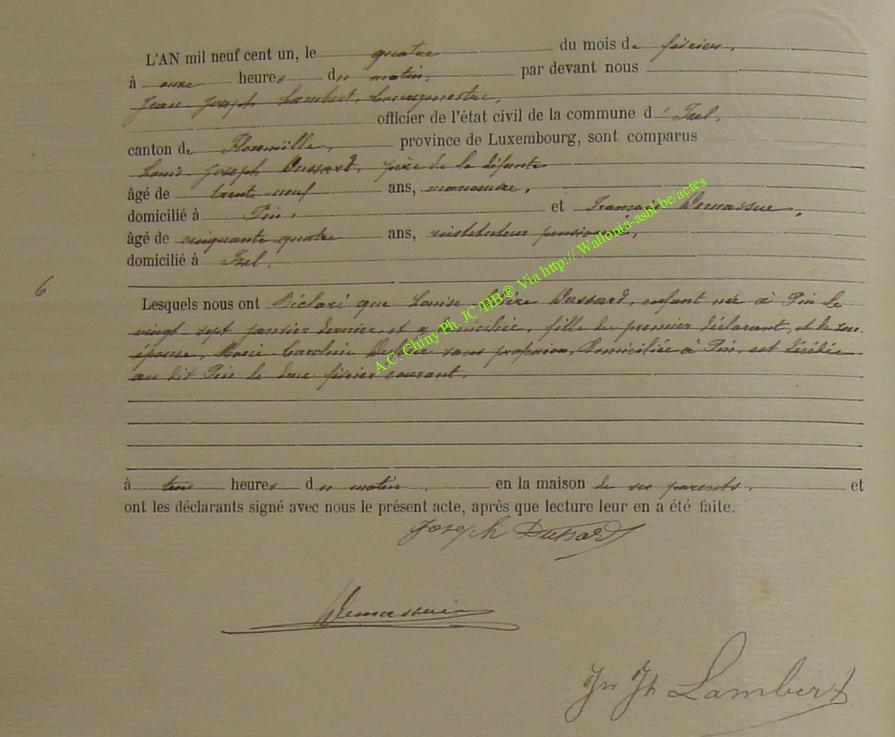 L'AN mil neuf cent un, le quatre du mois de février,
à onze heures du matin, par devant nous
Jean Joseph Lambert, bourgmestre,
officier de l'état civil de la commune d'Izel,
canton de Florenville, province de Luxembourg, sont comparus
Louis Joseph Dussard, père de la défunte
âgé de trente neuf ans, manoeuvre,
domicilié à Pin, et François Demasse,
âgé de cinquante quatre ans, instituteur pensionné,
domicilié à Izel.
6
Lesquels nous ont Déclaré que Louise Dussard, enfant née à Pin le
vingt sept janvier dernier, et y domiciliée, fille du premier déclarant, et de son
épouse, Marie Caroline sans profession, domiciliée à Pin, est décédée
au dit Pin le deux février courant,
à trois heures du matin, en la maison de ses parents, et
ont les déclarants signé avec nous le présent acte, après que lecture leur en a été faite.
Joseph Dussard
Jn Jh Lambert
A.C. Chiny Ph. JC/HB® Via http:// Wallonia-asbl.be/actes